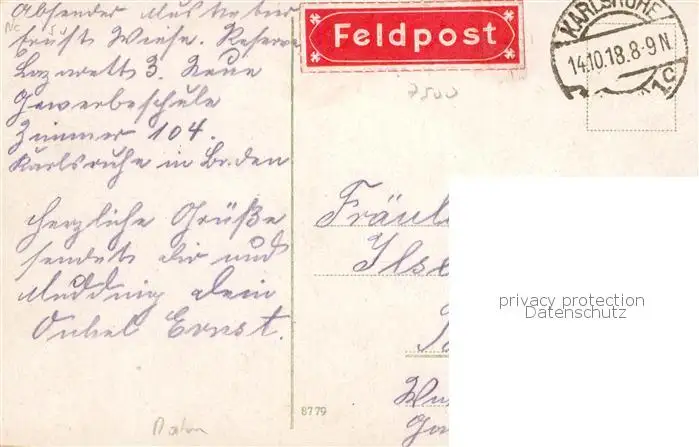 Absender Musketier
Ernst Wiese. Reserve
Lazarett 3. Neue
Gewerbeschule
Zimmer 104.
Karlsruhe in Baden
Herzliche Grüße
sendet dir und
dein
Onkel Ernst.
Feldpost
KARLSRUHE
14.10.18.8-9 N
1c
7500
Fräul
Ilse
privacy protection
Datenschutz
8779
Baden